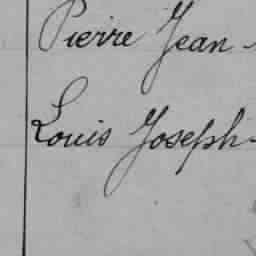 Pierre Jean -
Louis Joseph -